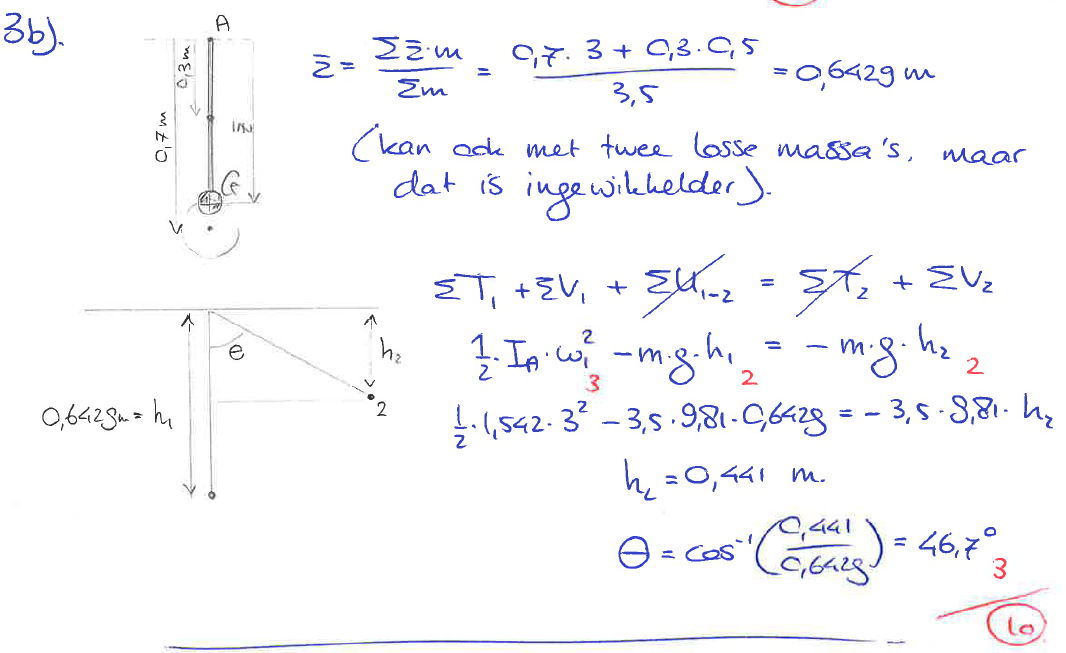 3b).
A
0,3 m
0,7 m
G
z̄ = Σz̄·m / Σm = 0,7 · 3 + 0,3 · 0,5 / 3,5 = 0,6429 m
(kan ook met twee losse massa's, maar
dat is ingewikkelder).
ΣT₁ + ΣV₁ + ΣU₁₋₂ = ΣT₂ + ΣV₂
1/2 · I_A · ω₁² - m·g·h₁ = - m·g·h₂
3 2 2
θ
h₂
2
0,6429m = h₁
1/2 · 1,542 · 3² - 3,5 · 9,81 · 0,6429 = - 3,5 · 9,81 · h₂
h₂ = 0,441 m.
θ = cos⁻¹(0,441 / 0,6429) = 46,7°
3
10